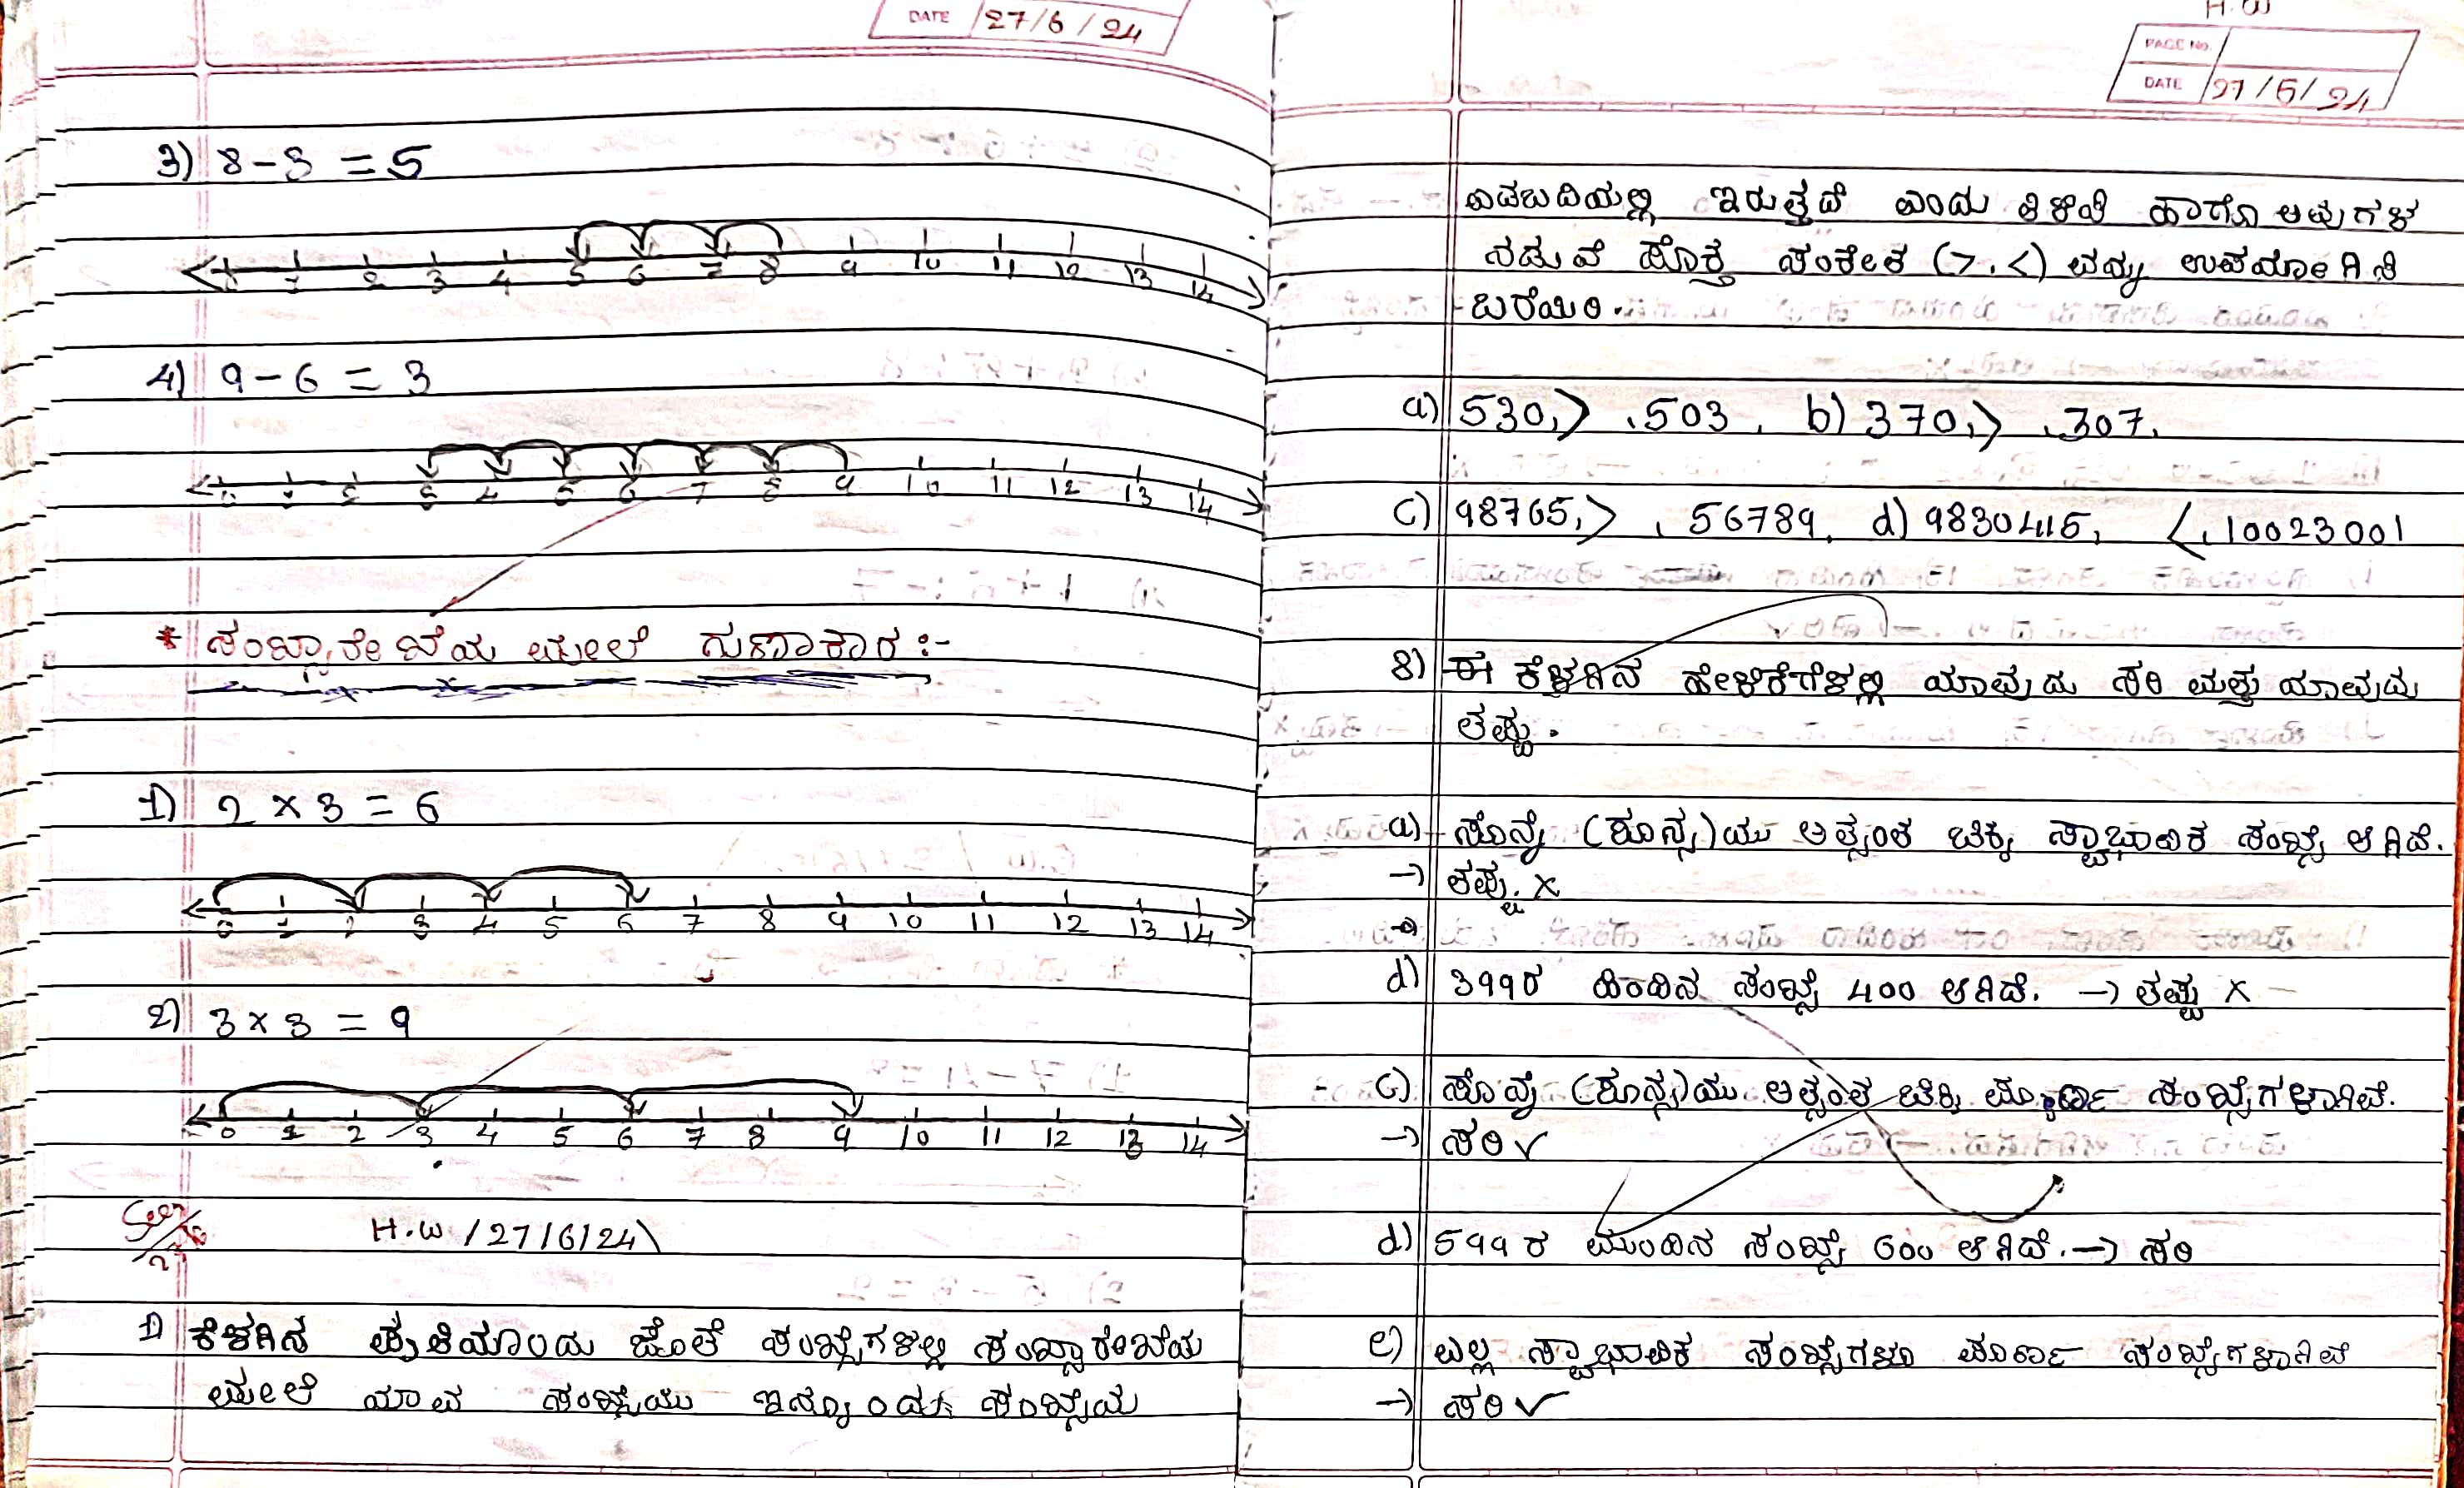 DATE 27/6/24
3) 8-3 = 5
0 1 2 3 4 5 6 7 8 9 10 11 12 13 14
4) 9-6 = 3
0 1 2 3 4 5 6 7 8 9 10 11 12 13 14
* ಸಂಖ್ಯಾರೇಖೆಯ ಮೇಲೆ ಗುಣಾಕಾರ :-
1) 2 × 3 = 6
0 1 2 3 4 5 6 7 8 9 10 11 12 13 14
2) 3 × 3 = 9
0 1 2 3 4 5 6 7 8 9 10 11 12 13 14
Seen
H.W /27/6/24\
1) ಕೆಳಗಿನ ಪ್ರತಿಯೊಂದು ಜೊತೆ ಸಂಖ್ಯೆಗಳಲ್ಲಿ ಸಂಖ್ಯಾರೇಖೆಯ
ಮೇಲೆ ಯಾವ ಸಂಖ್ಯೆಯು ಇನ್ನೊಂದು ಸಂಖ್ಯೆಯ
H.W
PAGE No.
DATE 27/6/24
ಎಡಬದಿಯಲ್ಲಿ ಇರುತ್ತದೆ ಎಂದು ತಿಳಿಸಿ ಹಾಗೂ ಅವುಗಳ
ನಡುವೆ ಸೂಕ್ತ ಸಂಕೇತ (>.<) ವನ್ನು ಉಪಯೋಗಿಸಿ
ಬರೆಯಿರಿ.
a) 530, > .503. b) 370, > .307.
c) 98765, > . 56789. d) 9830415, < .10023001
8) ಈ ಕೆಳಗಿನ ಹೇಳಿಕೆಗಳಲ್ಲಿ ಯಾವುದು ಸರಿ ಮತ್ತು ಯಾವುದು
ತಪ್ಪು.
a) ಸೊನ್ನೆ (ಶೂನ್ಯ)ಯು ಅತ್ಯಂತ ಚಿಕ್ಕ ಸ್ವಾಭಾವಿಕ ಸಂಖ್ಯೆ ಆಗಿದೆ.
→ ತಪ್ಪು. ×
d) 399ರ ಹಿಂದಿನ ಸಂಖ್ಯೆ 400 ಆಗಿದೆ. → ತಪ್ಪು ×
c) ಸೊನ್ನೆ (ಶೂನ್ಯ)ಯು ಅತ್ಯಂತ ಚಿಕ್ಕ ಪೂರ್ಣ ಸಂಖ್ಯೆಗಳಾಗಿವೆ.
→ ಸರಿ ✓
d) 599ರ ಮುಂದಿನ ಸಂಖ್ಯೆ 600 ಆಗಿದೆ. → ಸರಿ
e) ಎಲ್ಲ ಸ್ವಾಭಾವಿಕ ಸಂಖ್ಯೆಗಳೂ ಪೂರ್ಣ ಸಂಖ್ಯೆಗಳಾಗಿವೆ
→ ಸರಿ ✓